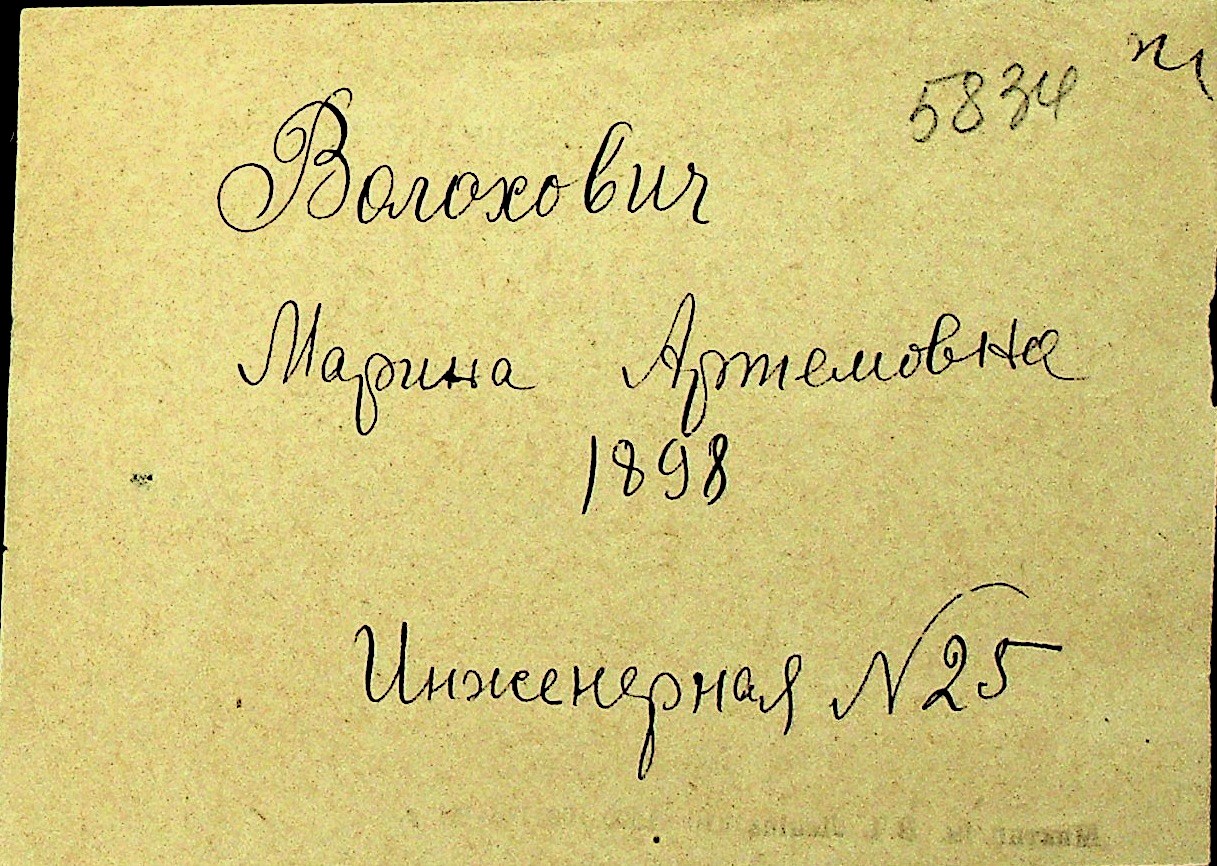 5834
Волохович
Марина Артемовна
1898
Инженерная N25